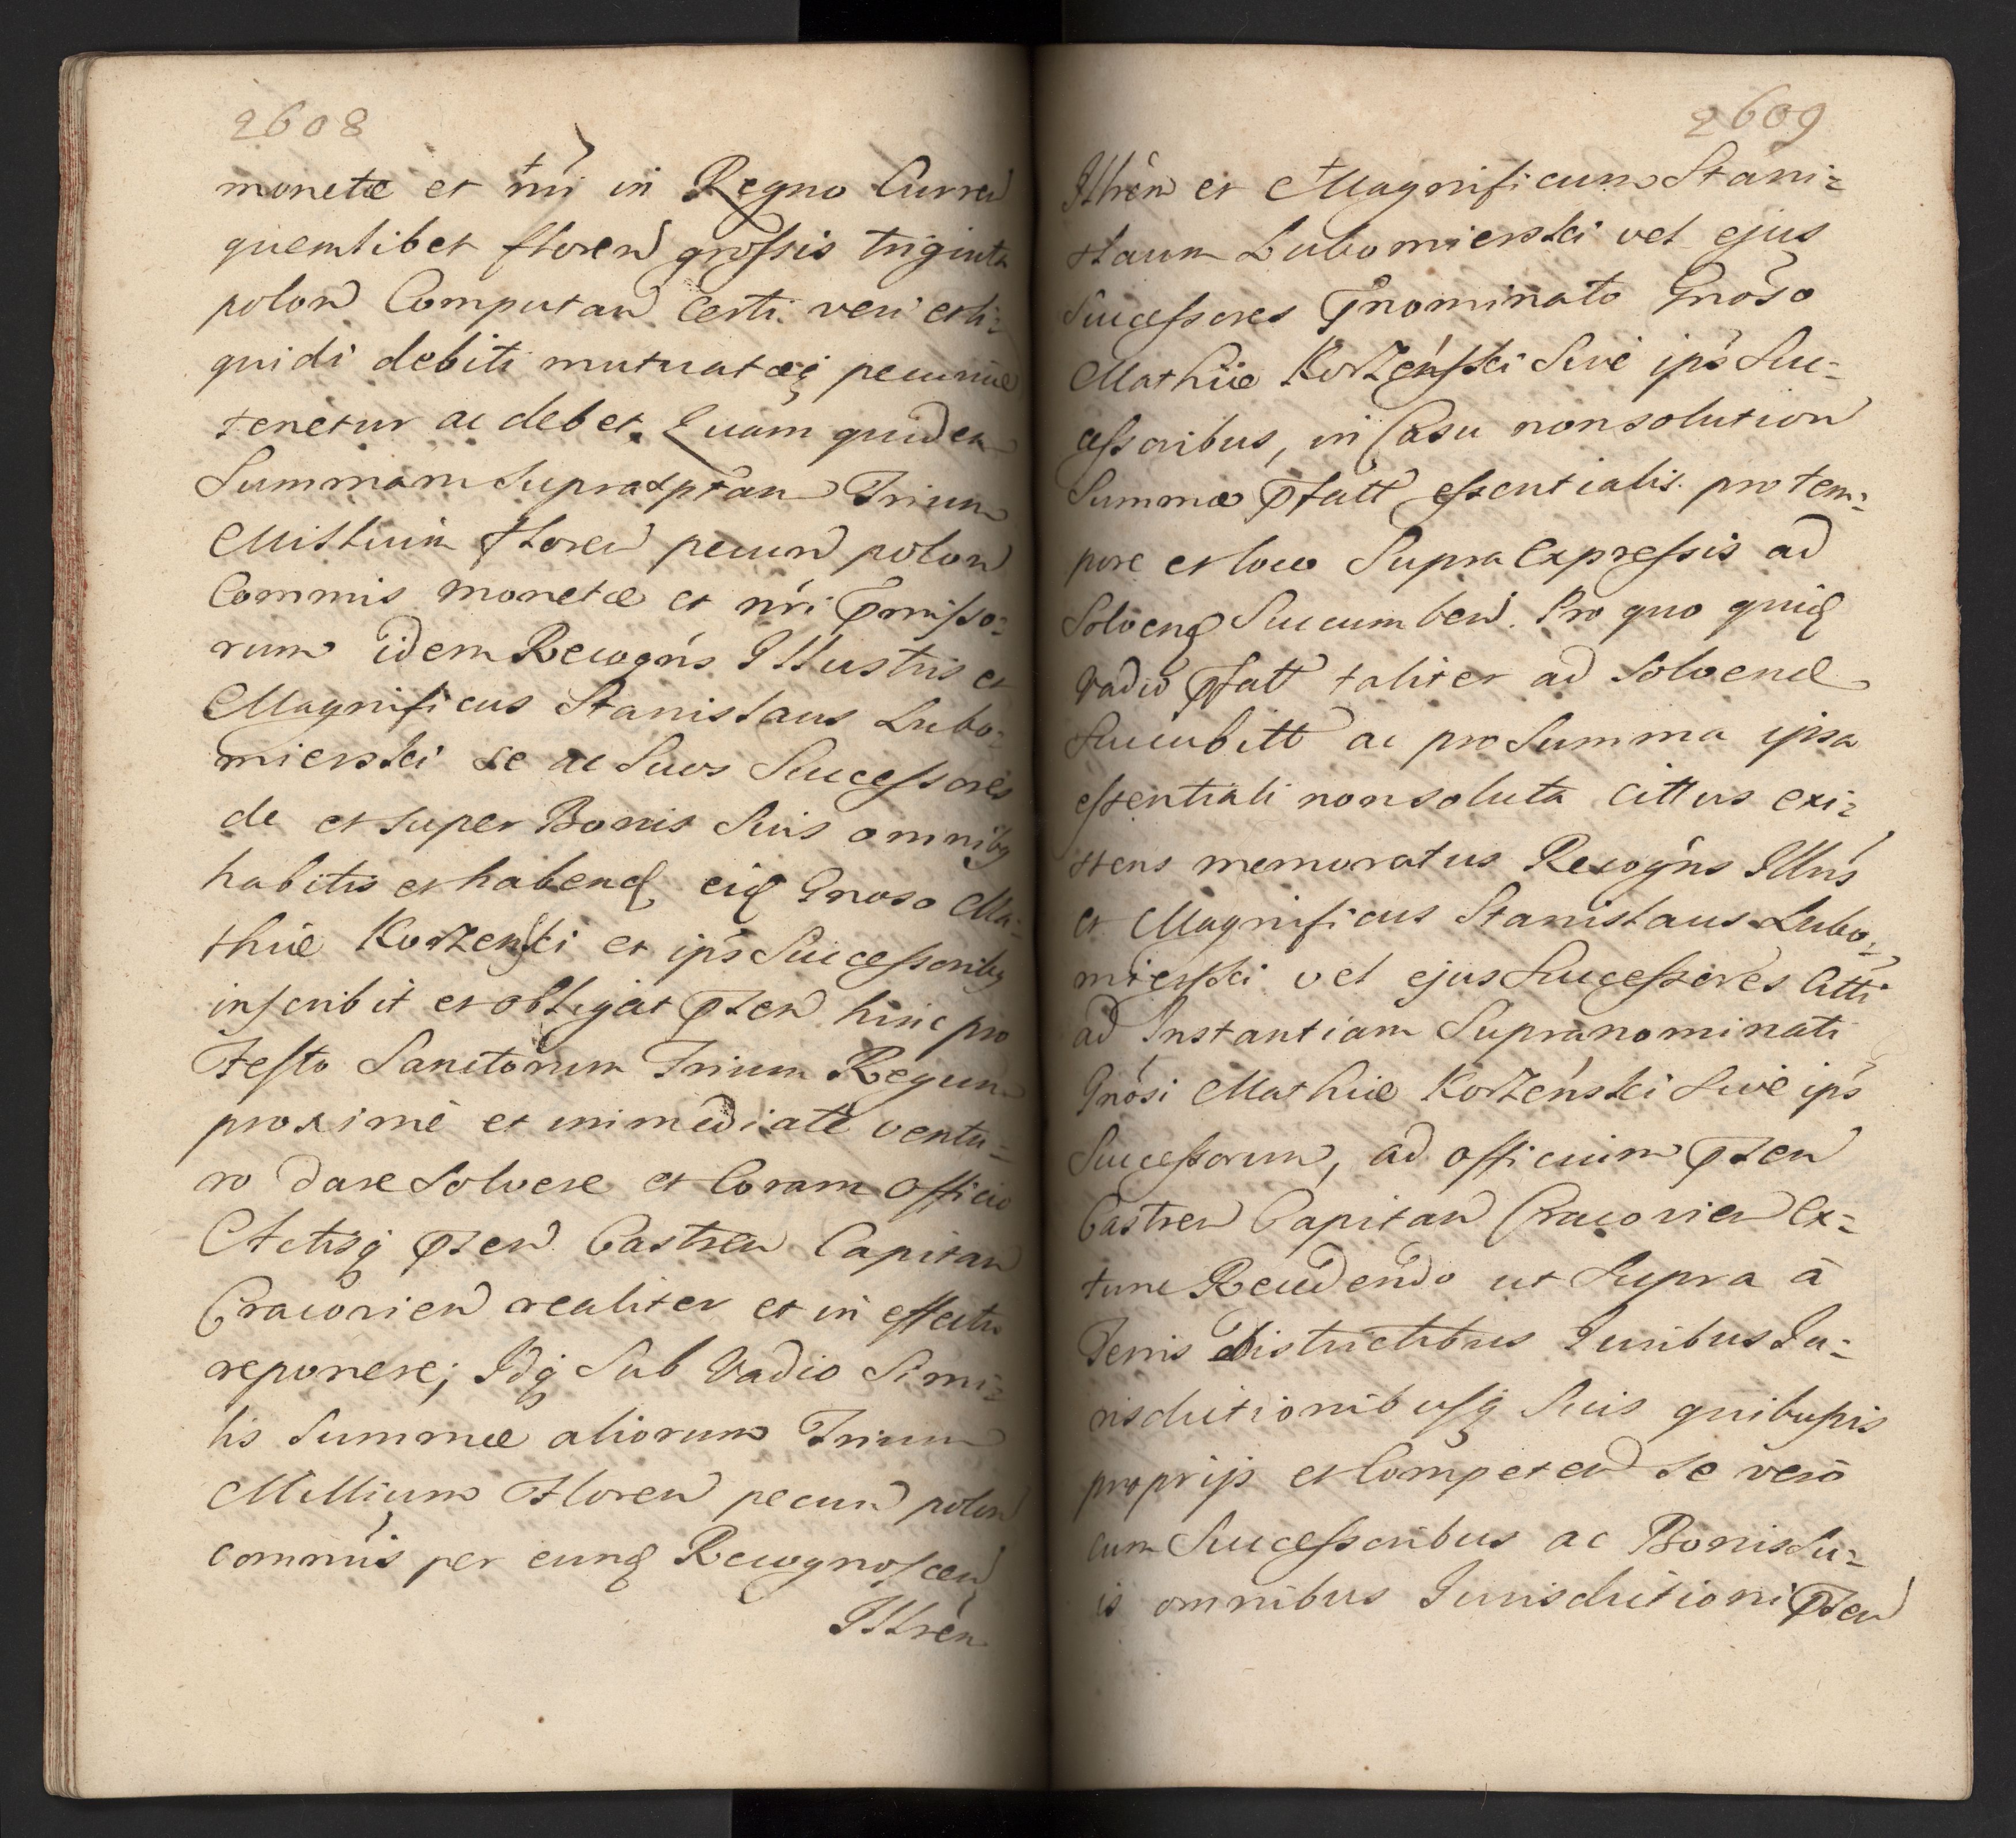 2608
monetæ et nri in Regno Curren
quemlibet floren grossis triginta
polon Computan Certi veri et li=
quidi debiti mutuatæq pecuniæ
tenetur ac debet. Quam quidem
Summam supra Trium
Millium floren pecun polon
Commis monetæ et nri Pmisso=
rum idem Recogns Illustris et
Magnificus Stanislaus Lubo=
mierski se ac Suos Successores
de et super Bonis Suis omnibq
habitis et habend eid Gnoso Ma=
thiæ Korzenski et ips Successoribq
inscribit et obligat Pten hinc pro
Festo Sanctorum Trium Regum
proximè et immediatè ventu=
ro dare Solvere et Coram Officio
Actisq Pten Castren Capitan
Cracovien realiter et in effectu
reponere; Idq Sub Vadio Simi=
lis Summæ aliorum Trium
Millium Floren pecun polon
commis per eund Recognoscen
Illrèm
2609
Illrèm et Magnificum Stani=
slaum Lubomierski vel ejus
Successores Pnominato Gnoso
Mathiæ Korzenski Sive ips Suc=
cessoribus, in Casu non solution
Summæ Pfatt essentialis pro tem=
pore et loco Supra expressis ad
Solvend Succumben. Pro quo quid
vadio Pfatt taliter ad Solvend
Succubitt ac pro Summa ipsa
essentiali non soluta cittus exi=
stens memoratus Recogns Illris
et Magnificus Stanislaus Lubo=
mierski vel ejus Successores Citti
ad Instantiam Supranominati
Gnosi Mathiæ Korzenski Sive ips
Successorum, ad officium Pten
Castren Capitan Cracovien ex=
tunc Recedendo ut Supra à
Terris districtibus Juribus Ju=
risdictionibusq Suis quibusvis
proprijs et Competen Se verò
cum Successoribus ac Bonis Su=
is omnibus Jurisdictioni Pten